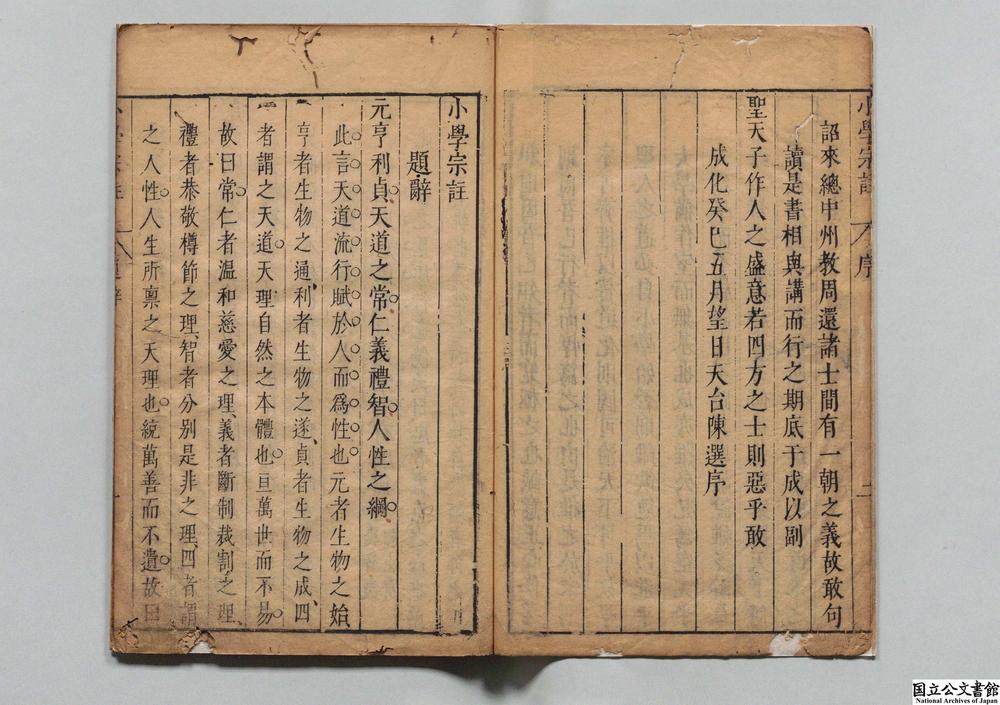 小學宗註
序
二
詔來總中州教周還諸士間有一朝之義故敢句
讀是書相與講而行之期底于成以副
聖天子作人之盛意若四方之士則惡乎敢
成化癸巳五月望日天台陳選序
小學宗註
題辭
元亨利貞天道之常仁義禮智人性之綱
此言天道流行賦於人而爲性也元者生物之始
亨者生物之通利者生物之遂貞者生物之成四
者謂之天道天理自然之本體也亘萬世而不易
故曰常仁者温和慈愛之理義者斷制裁割之理
禮者恭敬樽節之理智者分別是非之理四者謂
之人性人生所禀之天理也統萬善而不遺故曰
一
国立公文書館
National Archives of Japan